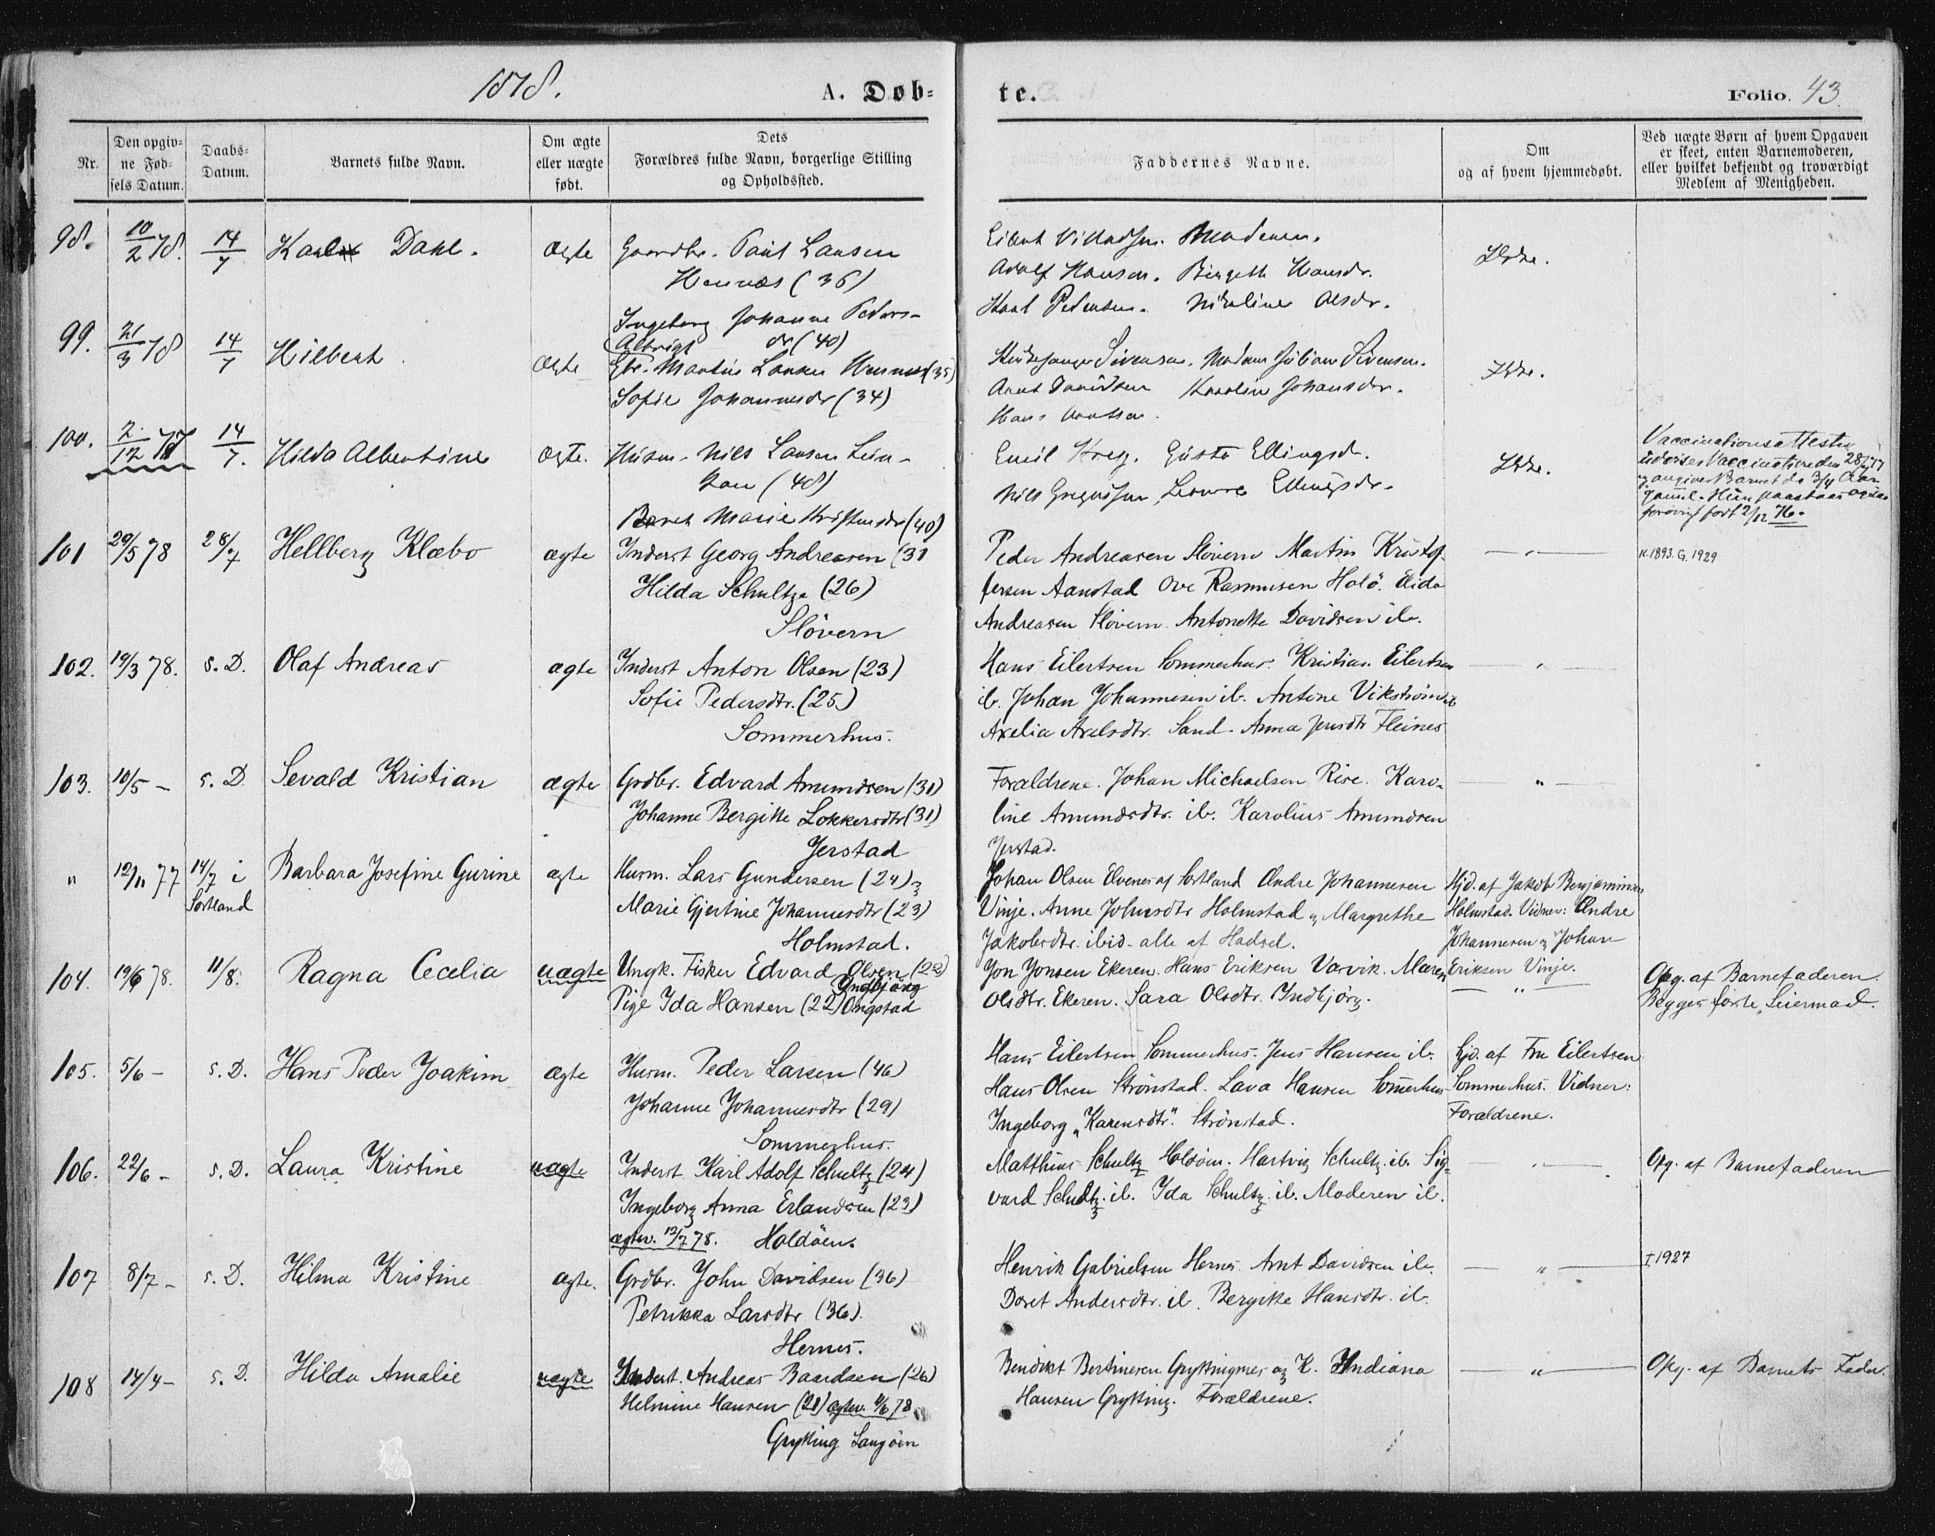 1878.
A. Døb-
te.
Folio. 43.
Nr.
Den opgiv-
ne Fød-
sels Datum.
Daabs-
Datum.
Barnets fulde Navn.
Om ægte
eller uægte
født.
Dets
Forældres fulde Navn, borgerlige Stilling
og Opholdssted.
Faddernes Navne.
Om
og af hvem hjemmedøbt.
Ved uægte Børn af hvem Opgaven
er skeet, enten Barnemoderen,
eller hvilket bekjendt og troværdigt
Medlem af Menigheden.
98. 10/2 78. 14/7 Karl Dahl. ægte Gaardbr. Paul Larsen
Hennæs (36)
Ingeborg Johanne Peders-
dr (40)
Moderen.
Adolf Hansen. Birgeth Hansdr.
Karl Pedersen. Nikoline Olsdr.
Ikke.
99. 21/3 78 14/7 Hilbert. ægte Gbr. Martin Larsen Hennes (35)
Sofie Johannesdr (34)
Kirkesanger Sivensen. Madam Juliane Sivensen.
Arnt Davidsen Karoline Johansdr.
Hans
Ikke.
100. 2/12 77 14/7. Hilda Albertine ægte. Husm. Nils Larsen
(48)
Beret Marie Kristensdr (40)
Emil Krey. Gusta Ellingsd.
Nils Gregusson, Ellingsdr.
Ikke.
Vaccinationsattesten
udviser Vaccination den 28/7 77
og angiver Barnet da 3/4 Aar
gaml. Hun paastaaes ogsaa
forøvrigt født 2/12 76.
101 29/5 78 28/7 Hellberg Klæbo ægte Inderst Georg Andreasen (31
Hilda Schultz (26)
Sløvern
Peder Andreasen Sløvern Martin Kristof-
fersen Aanstad Ove Rasmusen Holö. Elida
Andreasen Sløvern. Antonette Davidsen ib.
— " —
K. 1893. G. 1929
102. 19/3 78. s. D. Olaf Andreas ægte Inderst Anton Olsen (23)
Sofie Pedersdtr. (25)
Sommerhus.
Hans Eilertsen Sommerhus. Kristian Eilertsen
ib. Johan Johannesen ib. Antone Vikstrøm ib
Axelia Axelsdtr. Sand. Anna Jensdtr Fleines
— " —
103. 10/5 — s. D. Sevald Kristian ægte Grdbr. Edvard Amundsen (31)
Johanne Bergitte Lokkersdtr (31)
Jerstad
Forældrene. Johan Michaelsen Rise. Karo-
line Amundsdtr. ib. Karolius Amundsen
Jerstad.
— " —
" 12/11 77 14/7 i
Sortland
Barbara Josefine Gurine ægte Husm. Lars Gundersen (24)
Marie Gjertine Johannesdtr (23)
Holmstad.
Johan Olsen Elvenes af Sortland Andre Johannesen
Vinje. Anne Johnsdtr Holmstad og Margrethe
Jakobsdtr. ibid. alle af Hadsel.
Hjd. af Jakob Benjaminsen
Holmstad. Vidner: Andre
Johannesen og Johan
Eriksen Vinje.
104. 19/6 78. 11/8. Ragna Cecelia uægte Ungk. Fisker Edvard Olsen (22)
Indbjørg
Pige Ida Hansen (22) Ongstad
Jon Jonsen Ekeren. Hans Eriksen Varvik. Maren
Olsdtr. Ekeren. Sara Olsdtr. Indbjørg.
— " —
Opg. af Barnefaderen.
Begges første Leiermaal.
105. 5/6 — s. D. Hans Peder Joakim ægte Husm. Peder Larsen (46)
Johanne Johannesdtr (29)
Sommerhus.
Hans Eilertsen Sommerhus. Jens Hansen ib.
Hans Olsen Strønstad. Lava Hansen Somerhus
Ingeborg „Karensdtr." Strønstad.
Hjd. af Fru Eilertsen
Sommerhus. Vidner:
Forældrene.
106. 22/6 — s. D. Laura Kristine uægte Inderst Karl Adolf Schultz (24)
Ingeborg Anna Erlandsen (23)
ægtev. 12/7 78. Holdöen.
Matthias Schultz Holdöen. Hartvig Schultz. ib. Sig-
vard Schultz. ib. Ida Schultz. ib. Moderen ib.
— " —
Opg. af Barnefaderen
107 8/7 — s. D. Hilma Kristine ægte. Grdbr. John Davidsen (36)
Petrikka Larsdtr (36).
Hernes.
Henrik Gabrielsen Hernes. Arnt Davidsen ib.
Doret Andersdtr. ib. Bergitte Hansdtr. ib.
— " —
I. 1927
108 14/4 — s. D. Hilda Amalie uægte Inderst. Andreas Baardsen (26)
Helmine Hansen (21) ægtev. 11/6 78
Grytting Langöen
Benedikt Bertinesen Gryttingnes og K. Indiana
Hansen Grytting. Forældrene.
— " —
Opg. af Barnets Fader.